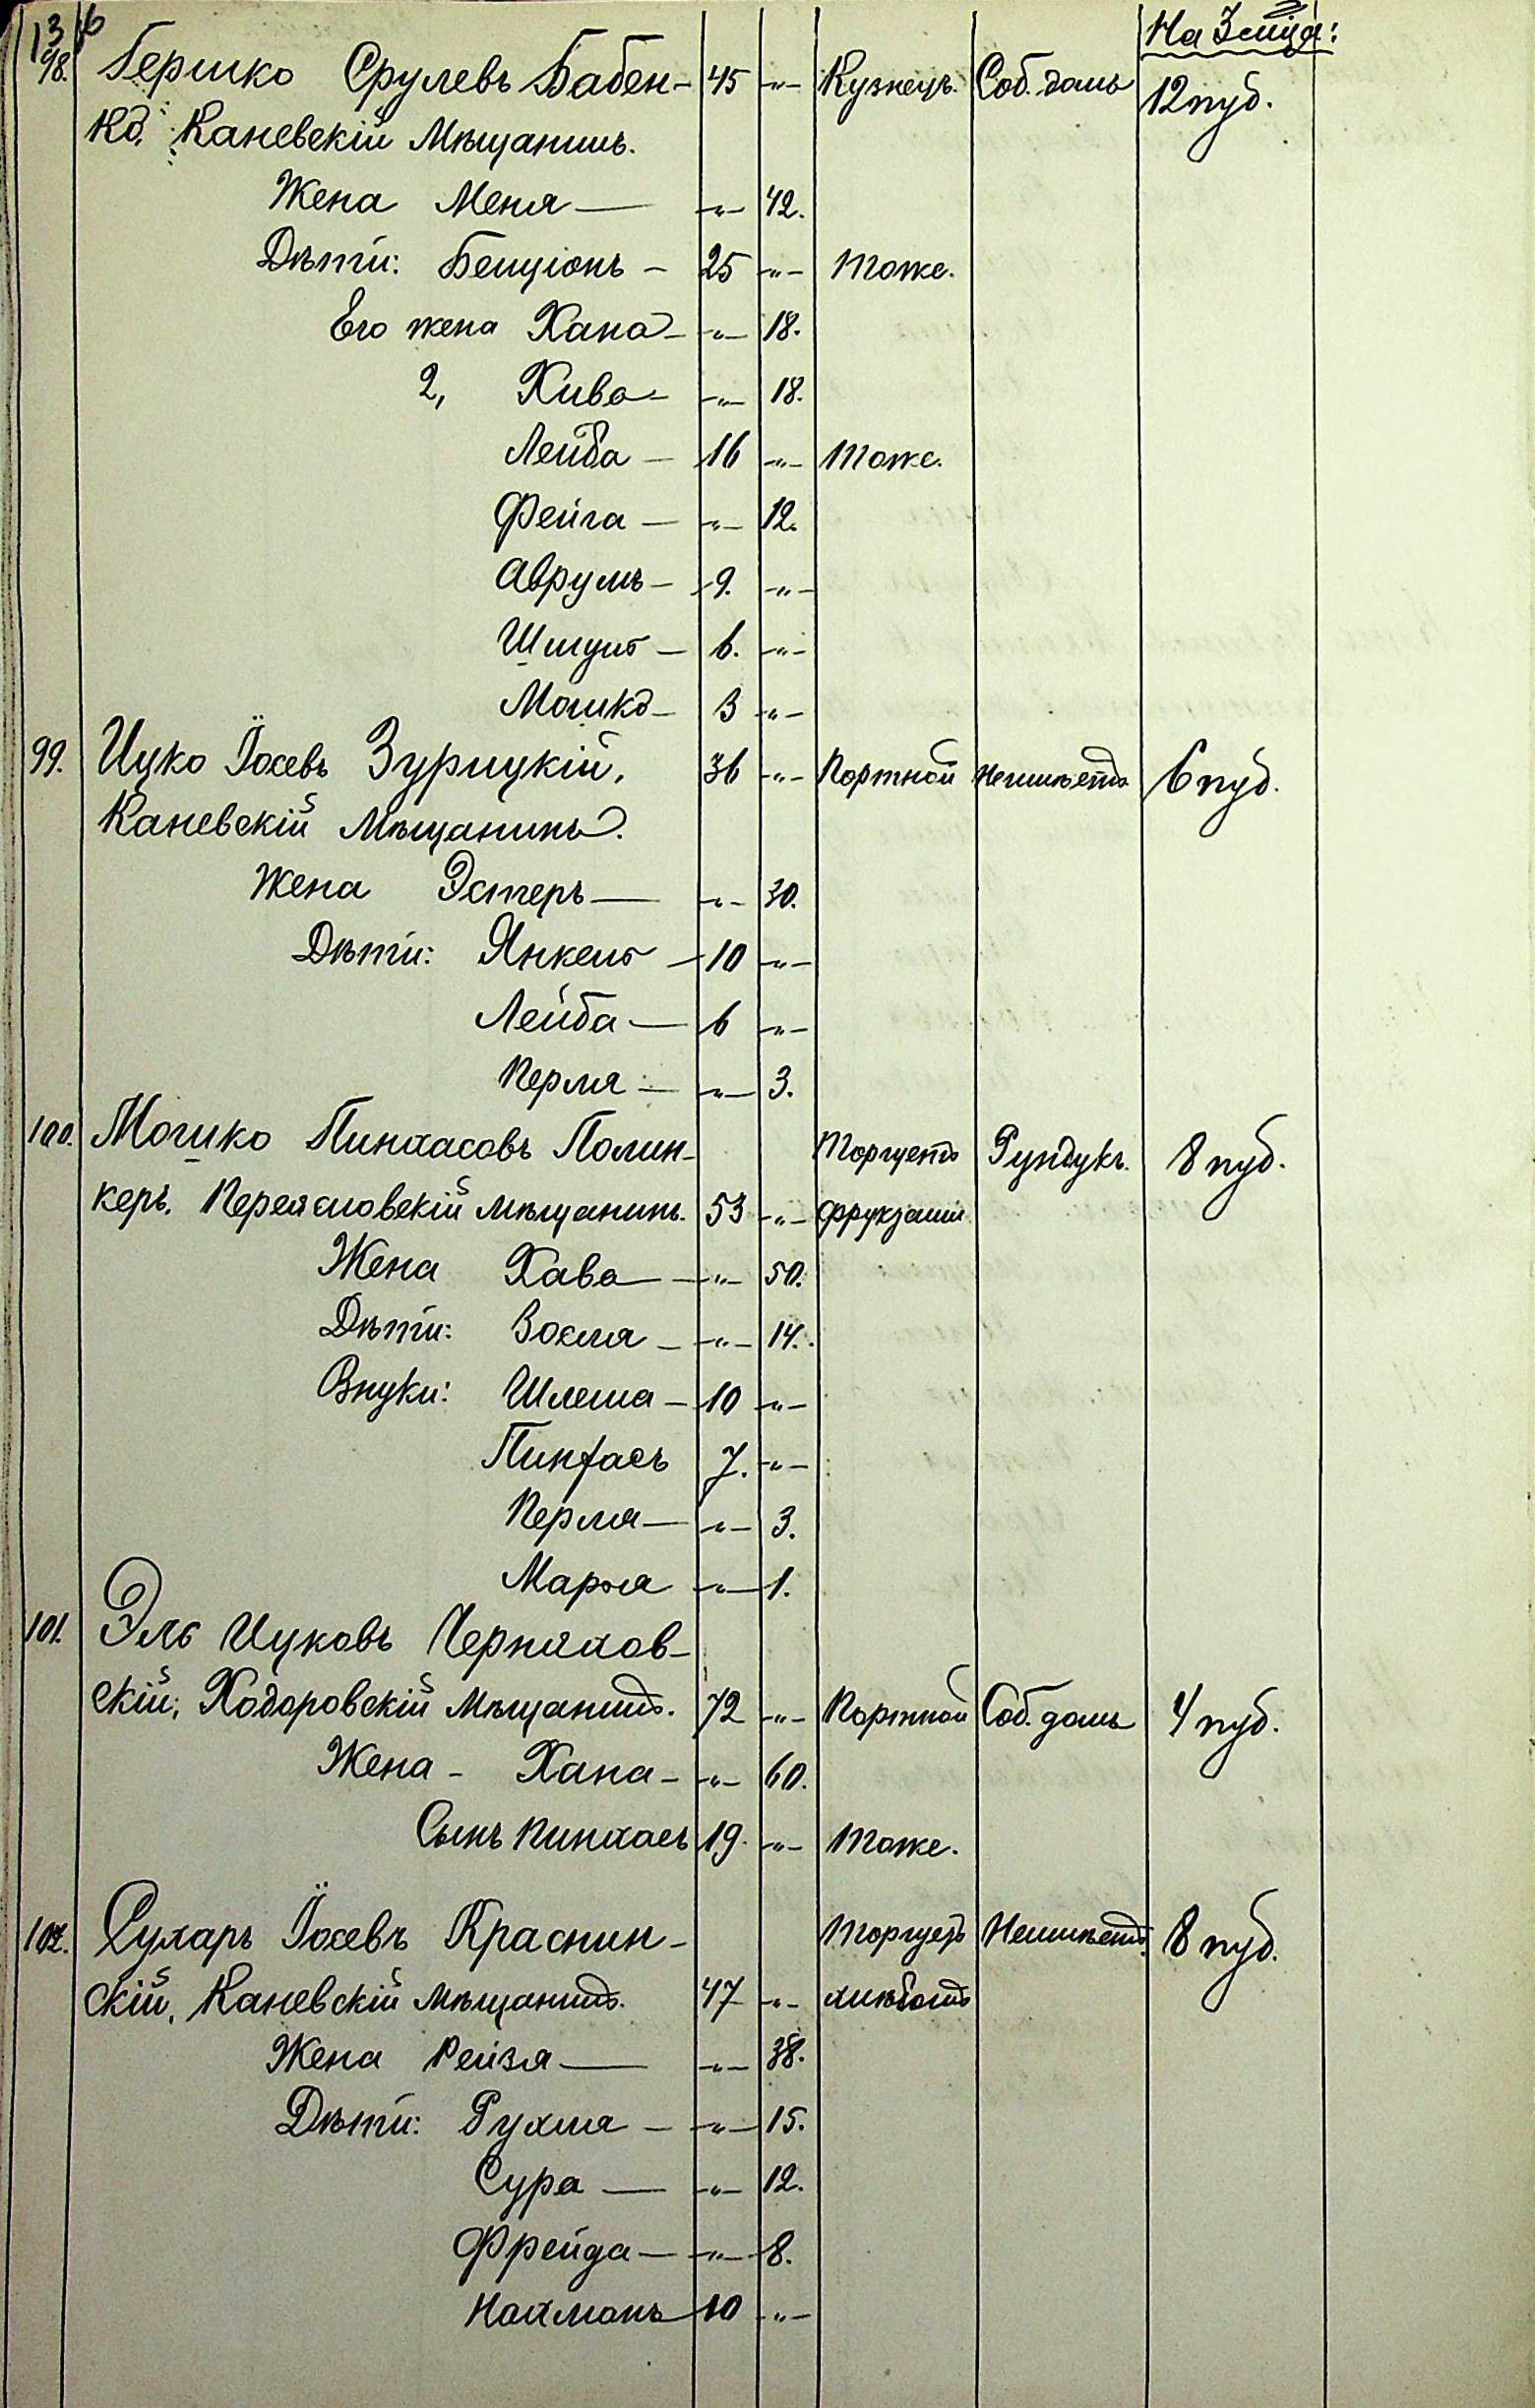 136
На 3 мца:
98. Гершко Срулевъ Бабен- 45 -"- Кузнецъ. Соб. домъ 12 пуд.
ко. Каневскій Мѣщанинъ.
Жена Меня — -"- 42.
Дѣти: Бенціонъ - 25 -"- тоже.
Его жена Хана - -"- 18.
2, Хива - -"- 18.
Лейба - 16 -"- тоже.
Фейга - -"- 12.
Аврумъ - 9. -"-
Шмулъ - 6. -"-
Мошко - 3 -"-
99. Ицко Іосевъ Зурицкій, 36 -"- Портной неимѣетъ 6 пуд.
Каневскій Мѣщанинъ.
Жена Эстеръ — -"- 30.
Дѣти: Янкель - 10 -"-
Лейба — 6 -"-
Перля - -"- 3.
100. Мошко Пинхасовъ Полин- Торгуетъ Рундукъ. 8 пуд.
керъ. Переясловскій мѣщанинъ. 53 -"- фруктами
Жена Хава — -"- 50.
Дѣти: Вохля - -"- 14.
Внуки: Шлема - 10 -"-
Пинхасъ 7. -"-
Перля — -"- 3.
Марья -"- 1.
101. Эль Ицковъ Черняхов-
скій; Ходоровскій Мѣщанинъ. 72 -"- Портной Соб. домъ 4 пуд.
Жена - Хана - -"- 60.
Сынъ Пинхасъ 19. -"- Тоже.
102. Сухаръ Іосевъ Краснин- Торгуетъ Неимѣетъ. 8 пуд.
скій, Каневскій мѣщанинъ. 47 -"- хлѣбомъ
Жена Рейзя — -"- 38.
Дѣти: Рухля - -"- 15.
Сура — -"- 12.
Фрейда — -"- 8.
Нахманъ 10 -"-